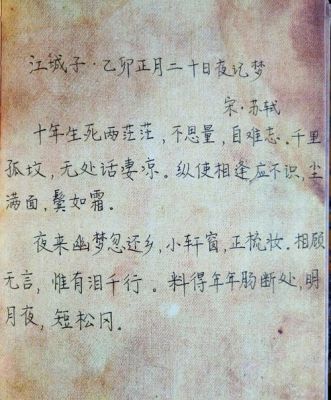 江城子·乙卯正月二十日夜记梦
宋·苏轼
十年生死两茫茫，不思量，自难忘。千里
孤坟，无处话凄凉。纵使相逢应不识，尘
满面，鬓如霜。
夜来幽梦忽还乡，小轩窗，正梳妆。相顾
无言，惟有泪千行。料得年年肠断处，明
月夜，短松冈。